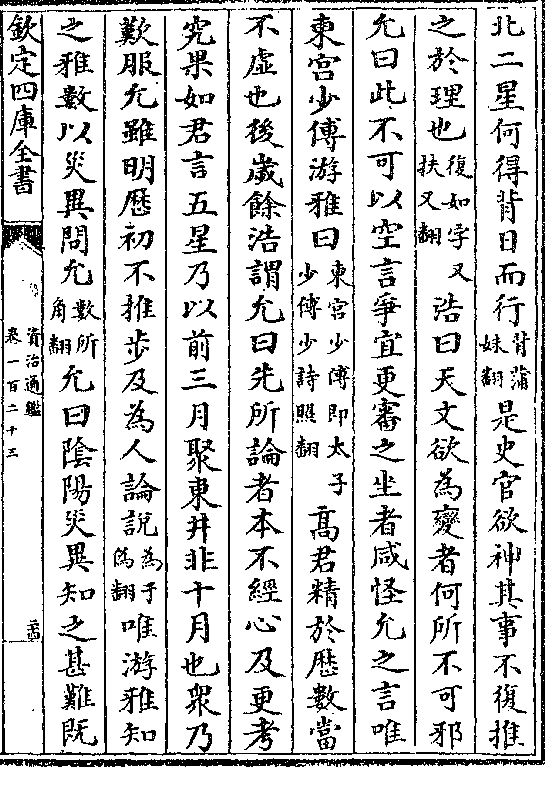 北二星何得背日而行背蒲妹翻是史官欲神其事不復推
之於理也復如字又扶又翻浩曰天文欲為變者何所不可邪
允曰此不可以空言爭宜更審之坐者咸怪允之言唯
東宫少傅游雅曰東宫少傅即太子少傅少詩照翻高君精於厯數當
不虛也後嵗餘浩謂允曰先所論者本不經心及更考
究果如君言五星乃以前三月聚東井非十月也衆乃
歎服允雖明厯初不推步及為人論說為于偽翻唯游雅知
之雅數以災異問允數所角翻允曰陰陽災異知之甚難既
欽定四庫全書
資治通鑑
卷一百二十三